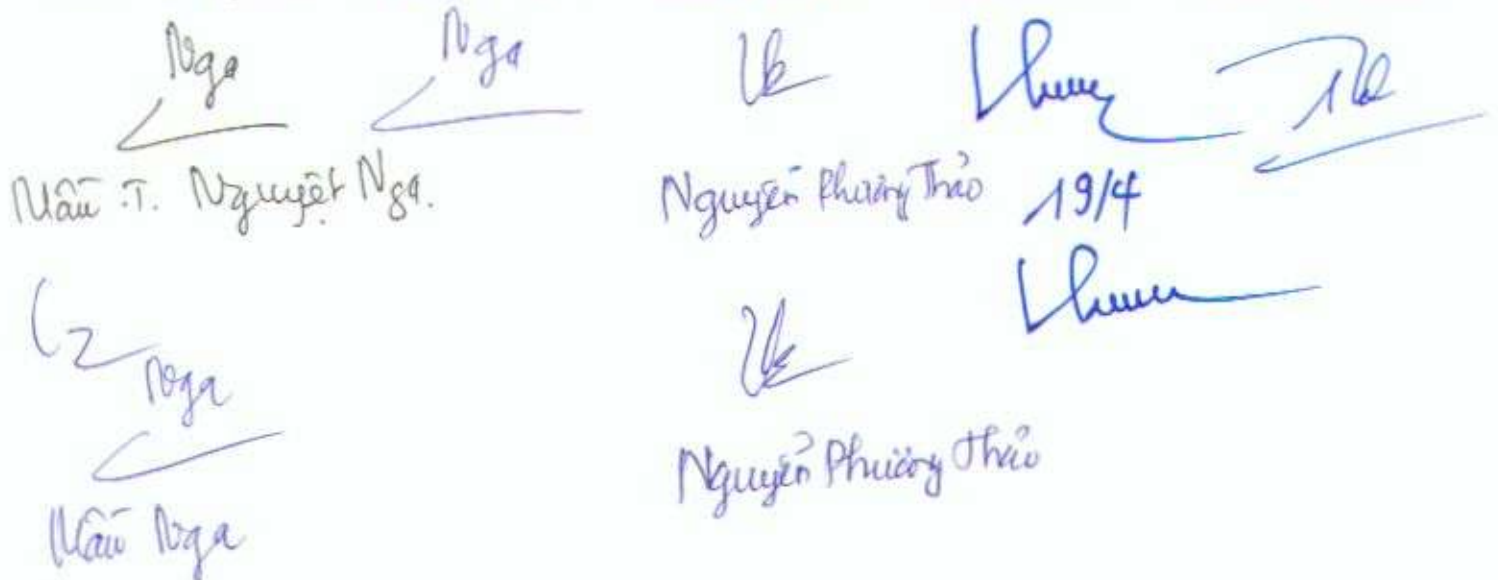 Nga
Nga
Mẫu T. Nguyệt Nga.
Nguyễn Phương Thảo
19/4
Nga
Nguyễn Phương Thảo
Mẫu Nga